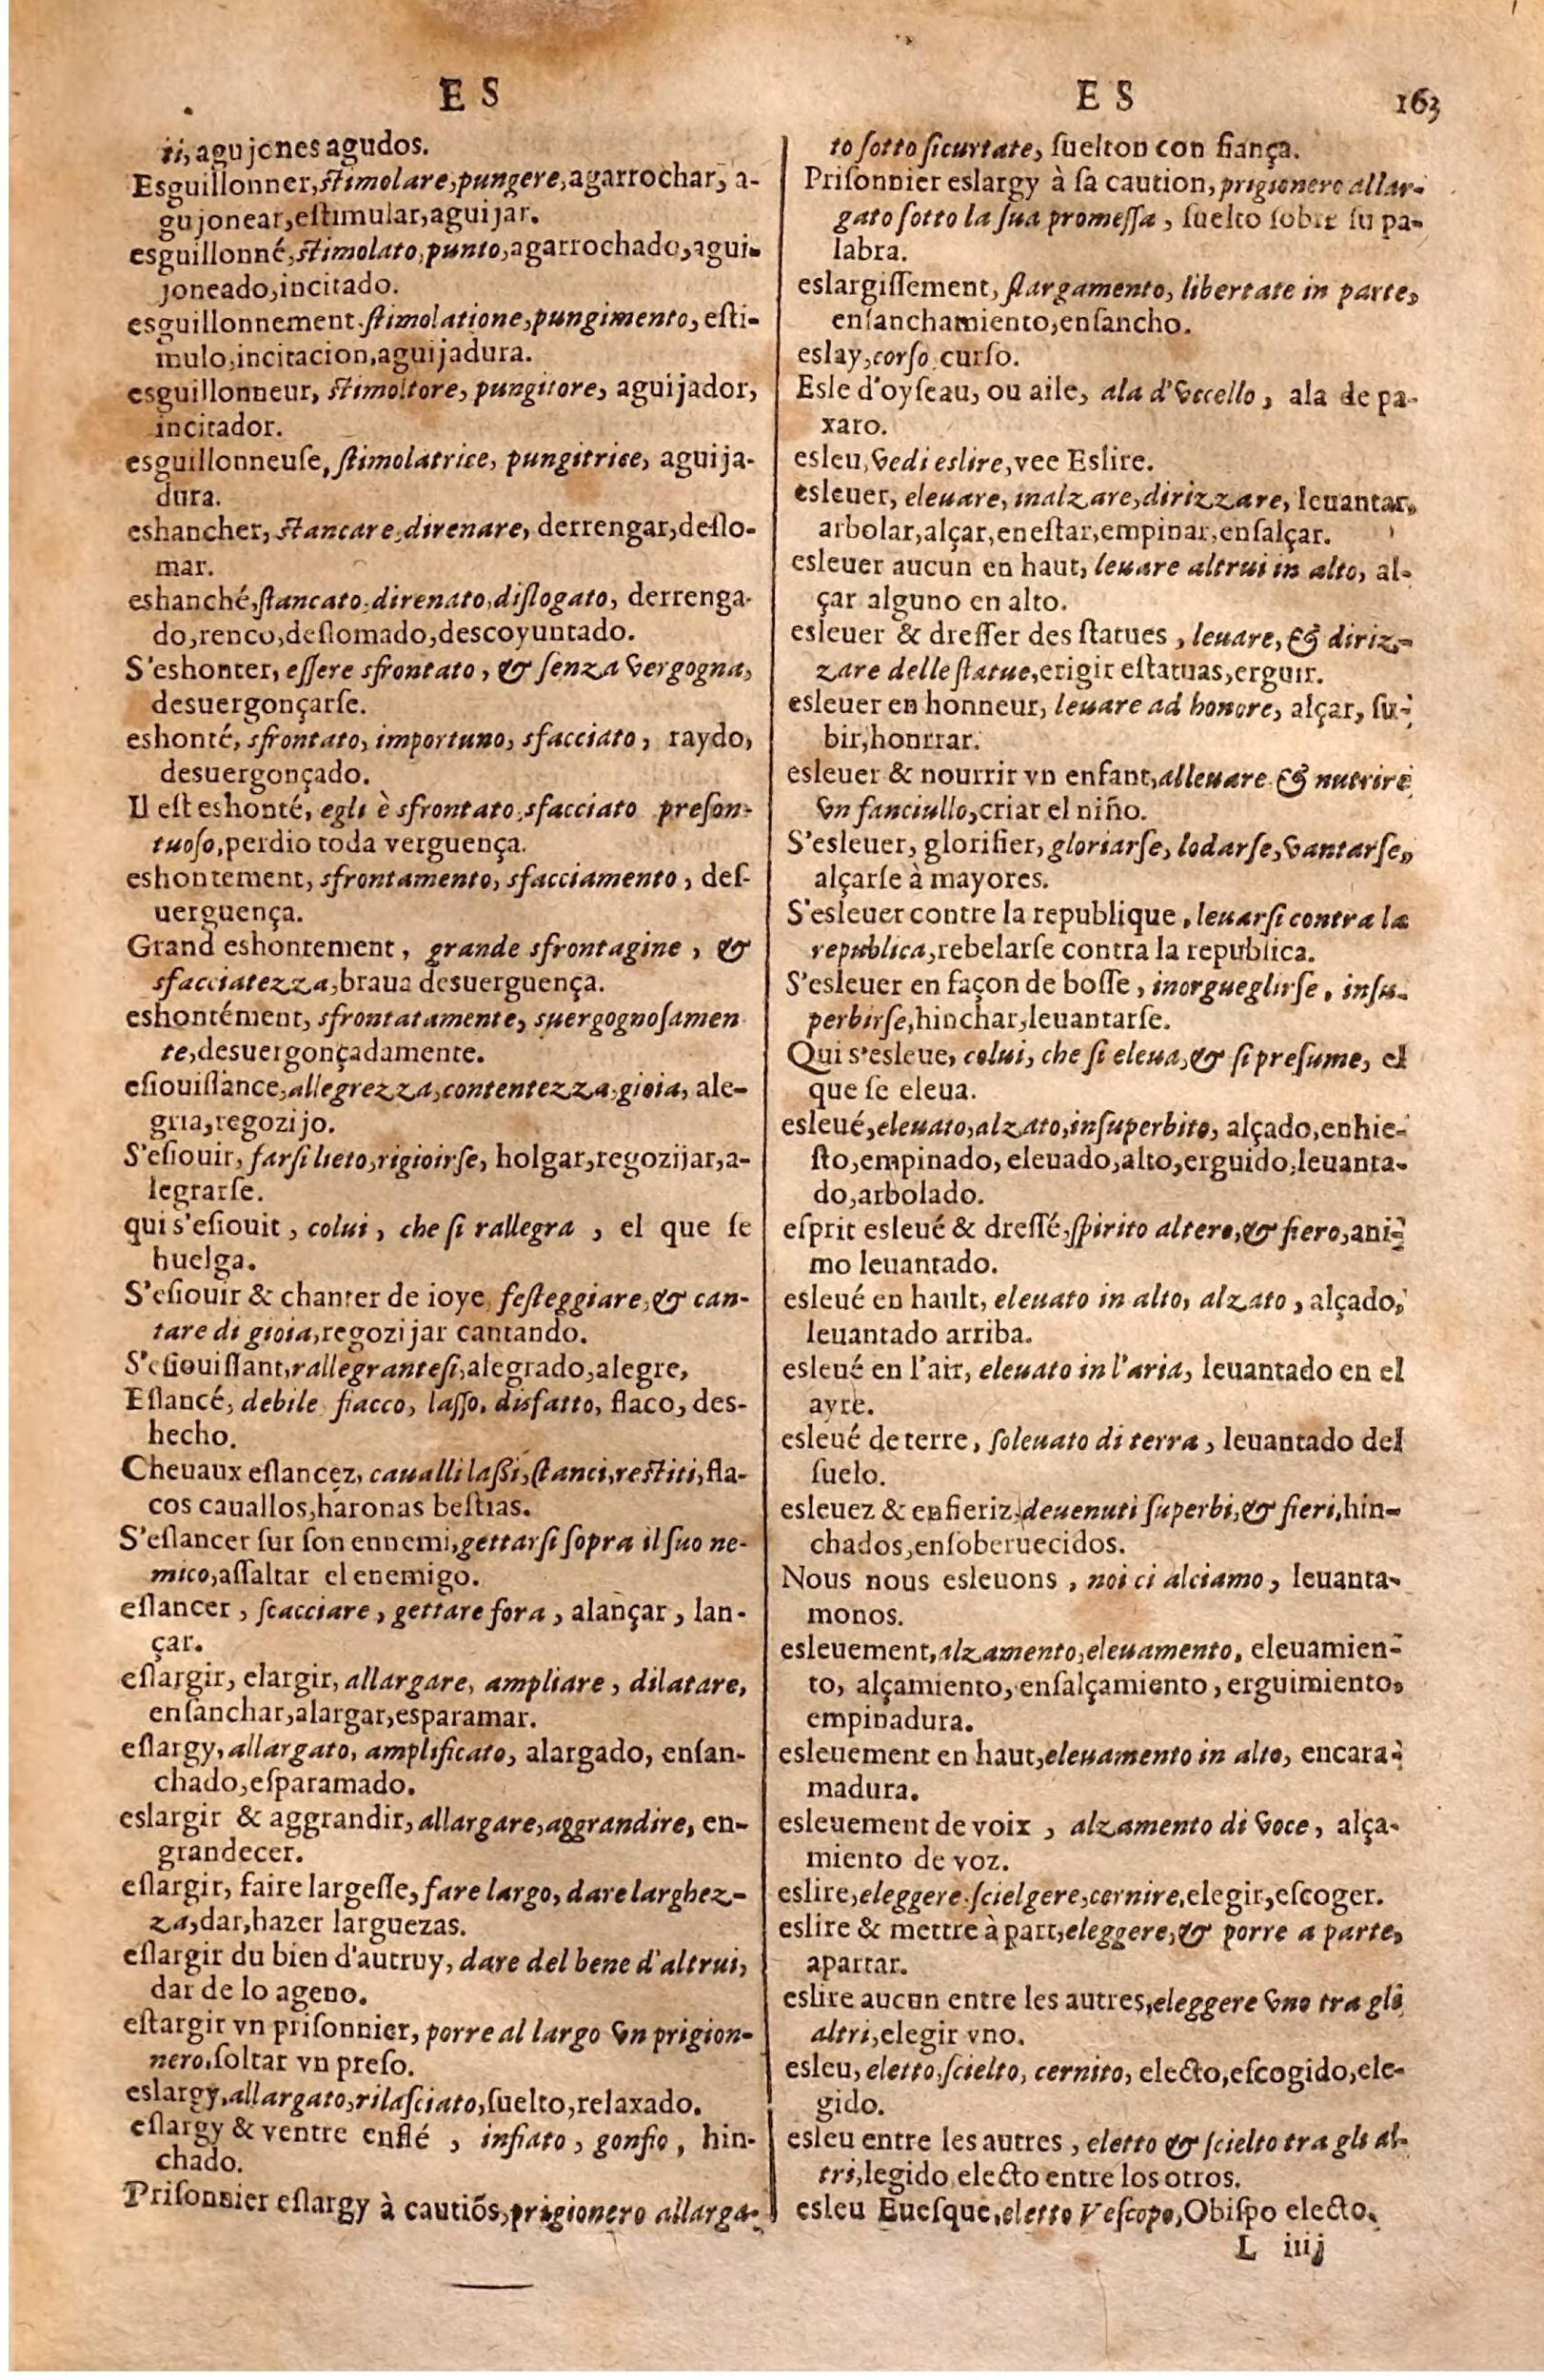 E S
ti, agujones agudos.
Esguillonner, stimolare, pungere, agarrochar, a-
gujonear, eſtimular, aguijar.
esguillonné, stimolato, punto, agarrochado, agui-
joneado, incitado.
esguillonnement. ſtimolatione, pungimento, eſti-
mulo, incitacion, aguijadura.
esguillonneur, stimoltore, pungitore, aguijador,
incitador.
esguillonneuſe, ſtimolatrice, pungitrice, aguija-
dura.
eshancher, stancare, direnare, derrengar, deſlo-
mar.
eshanché, ſtancato, direnato, diſlogato, derrenga-
do, renco, deſlomado, descoyuntado.
S'eshonter, eſſere sfrontato, & ſenza vergogna,
desuergonçarſe.
eshonté, sfrontato, importuno, sfacciato, raydo,
desuergonçado.
Il eſt eshonté, egli è sfrontato, sfacciato preſon-
tuoſo, perdio toda verguença.
eshontement, sfrontamento, sfacciamento, deſ-
uerguença.
Grand eshontement, grande sfrontagine, &
sfacciatezza, braua desuerguença.
eshontément, sfrontatamente, suergognoſamen
te, desuergonçadamente.
eſiouiſſance, allegrezza, contentezza, gioia, ale-
gria, regozijo.
S'eſiouir, farſi lieto, rigioirſe, holgar, regozijar, a-
legrarſe.
qui s'eſiouit, colui, che ſi rallegra, el que ſe
huelga.
S'eſiouir & chanter de ioye, feſteggiare, & can-
tare di gioia, regozijar cantando.
S'eſiouiſſant, rallegranteſi, alegrado, alegre,
Eſlancé, debile fiacco, laſſo, disfatto, flaco, des-
hecho.
Cheuaux eſlancez, caualli laßi, ſtanci, restiti, fla-
cos cauallos, haronas beſtias.
S'eſlancer ſur ſon ennemi, gettarſi ſopra il ſuo ne-
mico, aſſaltar el enemigo.
eſlancer, ſcacciare, gettare fora, alançar, lan-
çar.
eſlargir, elargir, allargare, ampliare, dilatare,
enſanchar, alargar, esparamar.
eſlargy, allargato, amplificato, alargado, enſan-
chado, eſparamado.
eslargir & aggrandir, allargare, aggrandire, en-
grandecer.
eſlargir, faire largeſſe, fare largo, dare larghez-
za, dar, hazer larguezas.
eſlargir du bien d'autruy, dare del bene d'altrui,
dar de lo ageno.
eſtargir vn priſonnier, porre al largo vn prigion-
nero, ſoltar vn preſo.
eslargy, allargato, rilaſciato, ſuelto, relaxado.
eſlargy & ventre enflé, infiato, gonfio, hin-
chado.
Priſonnier eſlargy à cautiõs, prigionero allarga-
E S 163
to ſotto ſicurtate, ſuelton con fiança.
Priſonnier eslargy à ſa caution, prigionero allar-
gato ſotto la ſua promeſſa, ſuelto ſobre ſu pa-
labra.
eslargiſſement, ſlargamento, libertate in parte,
enſanchamiento, enſancho.
eslay, corſo curſo.
Esle d'oyſeau, ou aile, ala d'vccello, ala de pa-
xaro.
esleu, vedi eslire, vee Eslire.
esleuer, eleuare, inalzare, dirizzare, leuantar,
arbolar, alçar, eneſtar, empinar, enſalçar.
esleuer aucun en haut, leuare altrui in alto, al-
çar alguno en alto.
esleuer & dreſſer des ſtatues, leuare, & diriz-
zare delle ſtatue, erigir eſtatuas, erguir.
esleuer en honneur, leuare ad honore, alçar, ſu-
bir, honrrar.
esleuer & nourrir vn enfant, alleuare & nutrire
vn fanciullo, criar el niño.
S'esleuer, glorifier, gloriarſe, lodarſe, vantarſe,
alçarſe à mayores.
S'esleuer contre la republique, leuarſi contra la
republica, rebelarſe contra la republica.
S'esleuer en façon de boſſe, inorgueglirſe, inſu-
perbirſe, hinchar, leuantarſe.
Qui s'esleue, colui, che ſi eleua, & ſi preſume, el
que ſe eleua.
esleué, eleuato, alzato, inſuperbito, alçado, enhie-
ſto, empinado, eleuado, alto, erguido, leuanta-
do, arbolado.
eſprit esleué & dreſſé, ſpirito altero, & fiero, ani-
mo leuantado.
esleué en hault, eleuato in alto, alzato, alçado,
leuantado arriba.
esleué en l'air, eleuato in l'aria, leuantado en el
ayre.
esleué de terre, ſoleuato di terra, leuantado del
ſuelo.
esleuez & enfieriz, deuenuti ſuperbi, & fieri, hin-
chados, enſoberuecidos.
Nous nous esleuons, noi ci alciamo, leuanta-
monos.
esleuement, alzamento, eleuamento, eleuamien-
to, alçamiento, enſalçamiento, erguimiento,
empinadura.
esleuement en haut, eleuamento in alto, encara-
madura.
esleuement de voix, alzamento di voce, alça-
miento de voz.
eslire, eleggere, ſcielgere, cernire, elegir, eſcoger.
eslire & mettre à part, eleggere, & porre a parte,
apartar.
eslire aucun entre les autres, eleggere vno tra gli
altri, elegir vno.
esleu, eletto, ſcielto, cernito, electo, eſcogido, ele-
gido.
esleu entre les autres, eletto & ſcielto tra gli al-
tri, legido electo entre los otros.
esleu Eueſque, eletto Veſcopo, Obiſpo electo.
L iiij